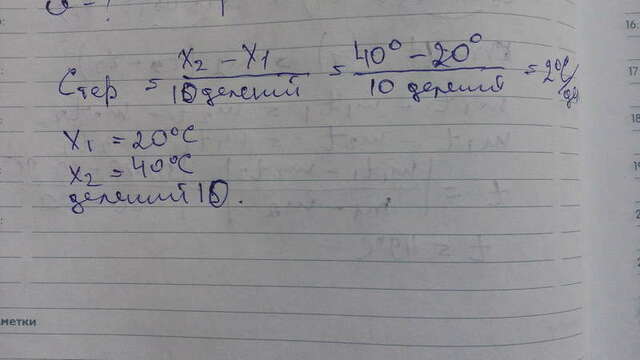 Стер = X₂ - X₁ / 10 делений = 40° - 20° / 10 делений = 2°C/дел
X₁ = 20°C
X₂ = 40°C
делений 10.
метки
16.
17
18